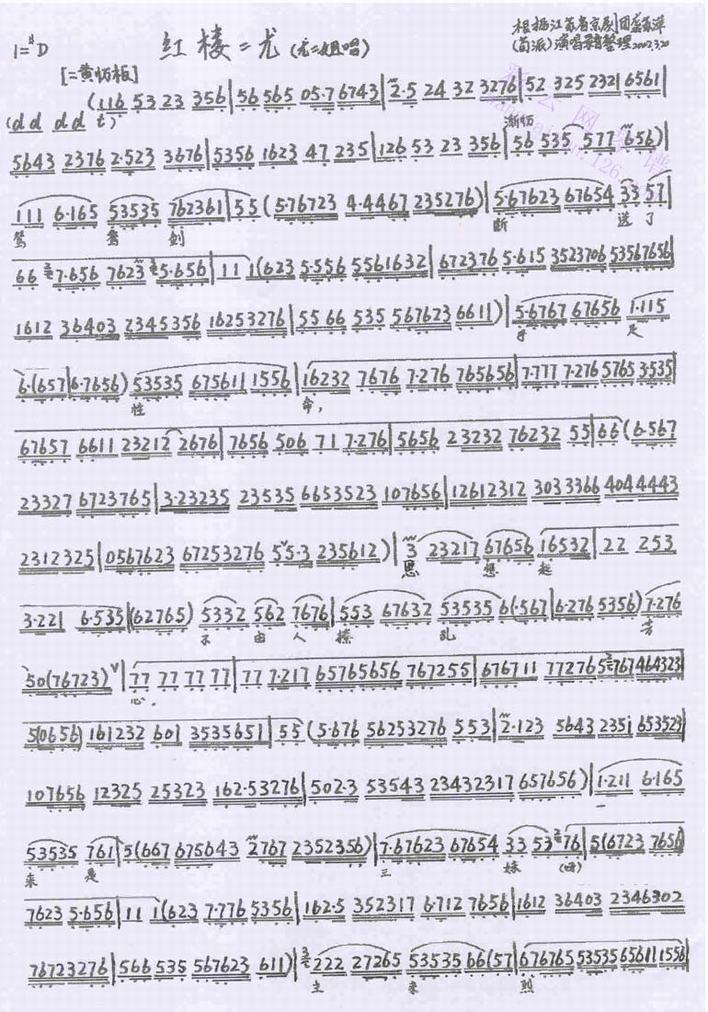 红楼二尤(尤二姐唱)
根据江苏省京剧团
(荀派)演唱录音整理2002.3.20
1=#D
[二黄慢板]
(116 53 23 356|56 565 05·7 6743|2·5 24 32 3276|52 325 232 6561|
(dd dd t)
渐慢
5643 2376 2·523 3676|5356 1623 47 235|126 53 23 356|56 535 577 656)|
111 6·165 53535 762361|55(5·76723 4·4467 235276)|5·67623 67654 33 57|
鸳 鸯 剑 断 送 了
66 7·656 7623 5·656|11 1(623 5·556 5561632|672376 5·615 3523706 53567656|
1612 36403 2345356 16253276|55 66 535 567623 6611)|5·6767 67656 1·115
手 足
6·(657|6·7656) 53535 675611 1556|16232 7676 7·276 765656|7·777 7·276 5765 3·535|
性 命,
67657 6611 23212 2676|7656 506 71 7·276|5656 23232 76232 55|66(6·567
23327 6723765|3·23235 23535 6653523 107656|12612312 3033366 4044443
2312325|0567623 67253276 55·3 235612)|3 23217 67656 16532|22 253
思 想 起
3·221 6·535|(62765) 5332 562 7676|553 67632 53535 6(·567|6·276 5356) 7·276
不 由 人 撩 乱 芳
50(76723)|77 77 77 77|77 7·217 65765656 767255|676711 772765 767464323|
心,
5(0656) 161232 601 3535651|55(5·676 56253276 553|2·123 5643 2351 653523|
107656 12325 25323 162·53276|502·3 53543 23432317 657656)|1·211 6·165
一
53535 761|5(667 675643 2767 2352356)|7·67623 67654 33 53 76|5(6723 7656)
来 是 三 妹 (呀)
7623 5·656|11 1(623 7·776 5356|162·5 352317 6·712 7656|1612 36403 2346302
76723276|566 535 567623 611)|222 27265 53535 66(57|676765 53535 656111556|
主 来 烈